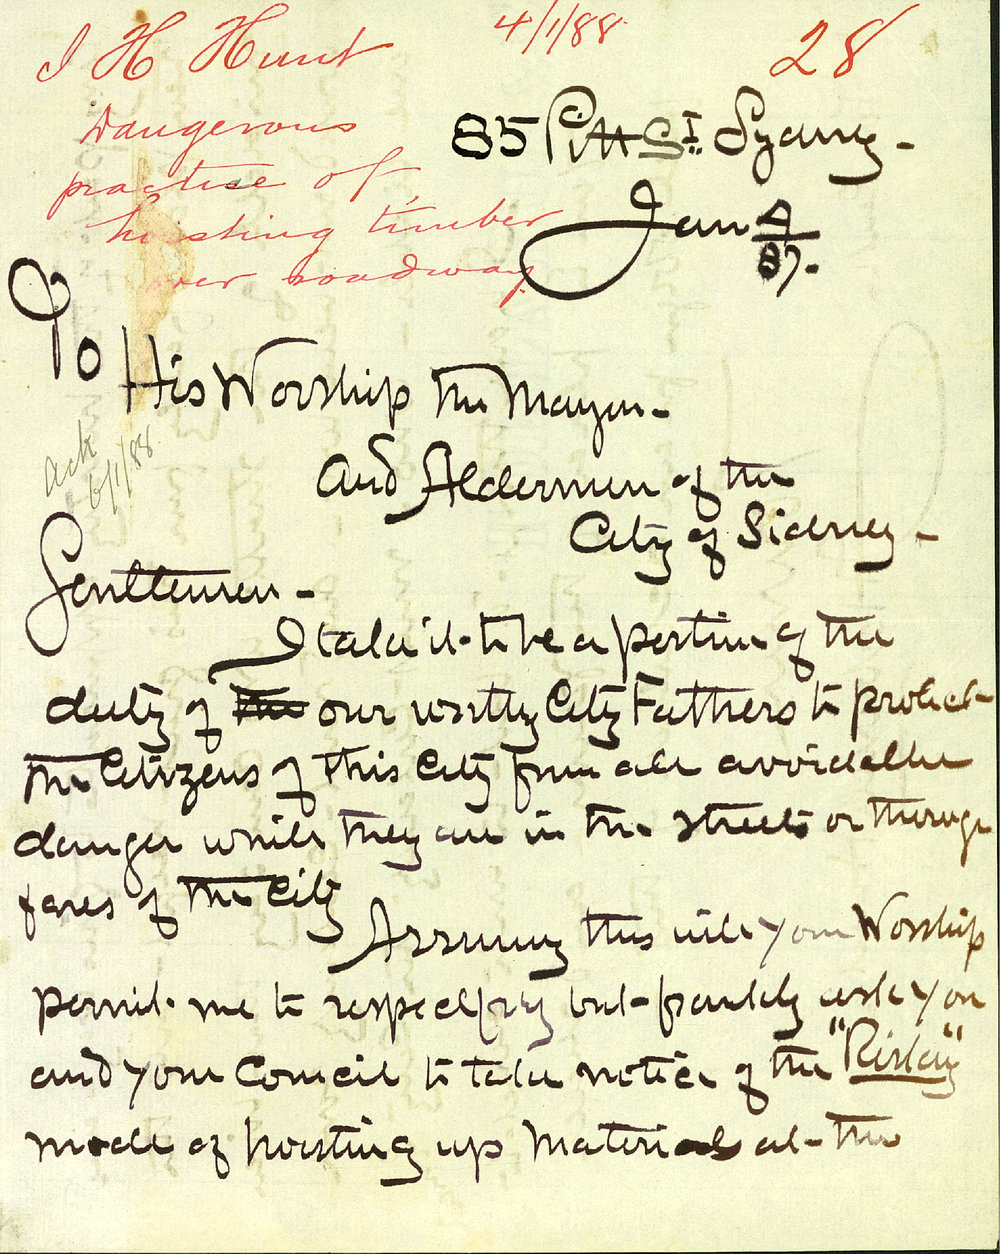 J H Hunt
4/1/88
28
Dangerous
practise of
hoisting timber
over roadway
85 Pitt St. Sydney -
Jan 4
87.
To
His Worship the Mayor -
and Aldermen of the
City of Sidney -
ack
6/1/88
Gentlemen -
I take it to be a portion of the
duty of the our worthy City Fathers to protect
the Citizens of this City from all avoidable
danger while they are in the streets or thoroug
fares of the City
Assuming this will your Worship
permit me to respectfuly but frankly ask you
and your Council to take notice of the "Risky"
mode of hoisting up materials at the